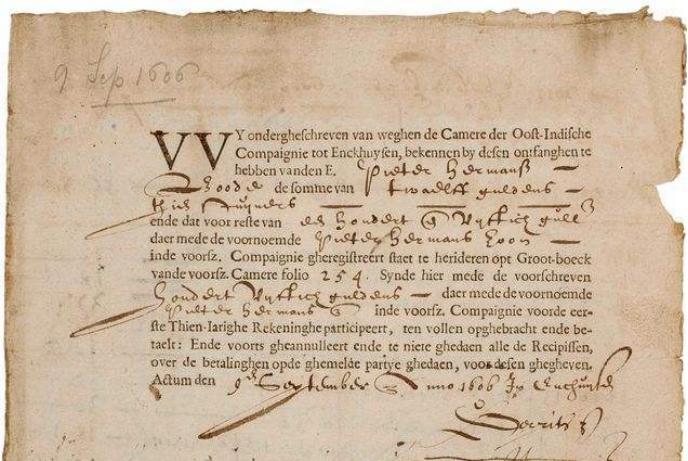 9 Sep 1606
VVY ondergheschreven van weghen de Camere der Oost-Indische
Compaignie tot Enckhuysen, bekennen by desen ontfanghen te
hebben vanden E. Pieter Hermansz
de somme van twaelff guldens
ende dat voor reste van hondert Vyftich gull
daer mede de voornoemde Pieter Hermans zoon
inde voorsz. Compaignie gheregistreert staet te herideren opt Groot-boeck
vande voorsz. Camere folio 254. Synde hier mede de voorschreven
hondert Vyftich guldens daer mede de voornoemde
Pieter Hermans inde voorsz. Compaignie voorde eer-
ste Thien-Iarighe Rekeninghe participeert, ten vollen opghebracht ende be-
taelt: Ende voorts gheannulleert ende te niere ghedaen alle de Recipissen,
over de betalinghen opde ghemelde partye ghedaen, voor desen ghegheven.
Actum den 9 September Anno 1606